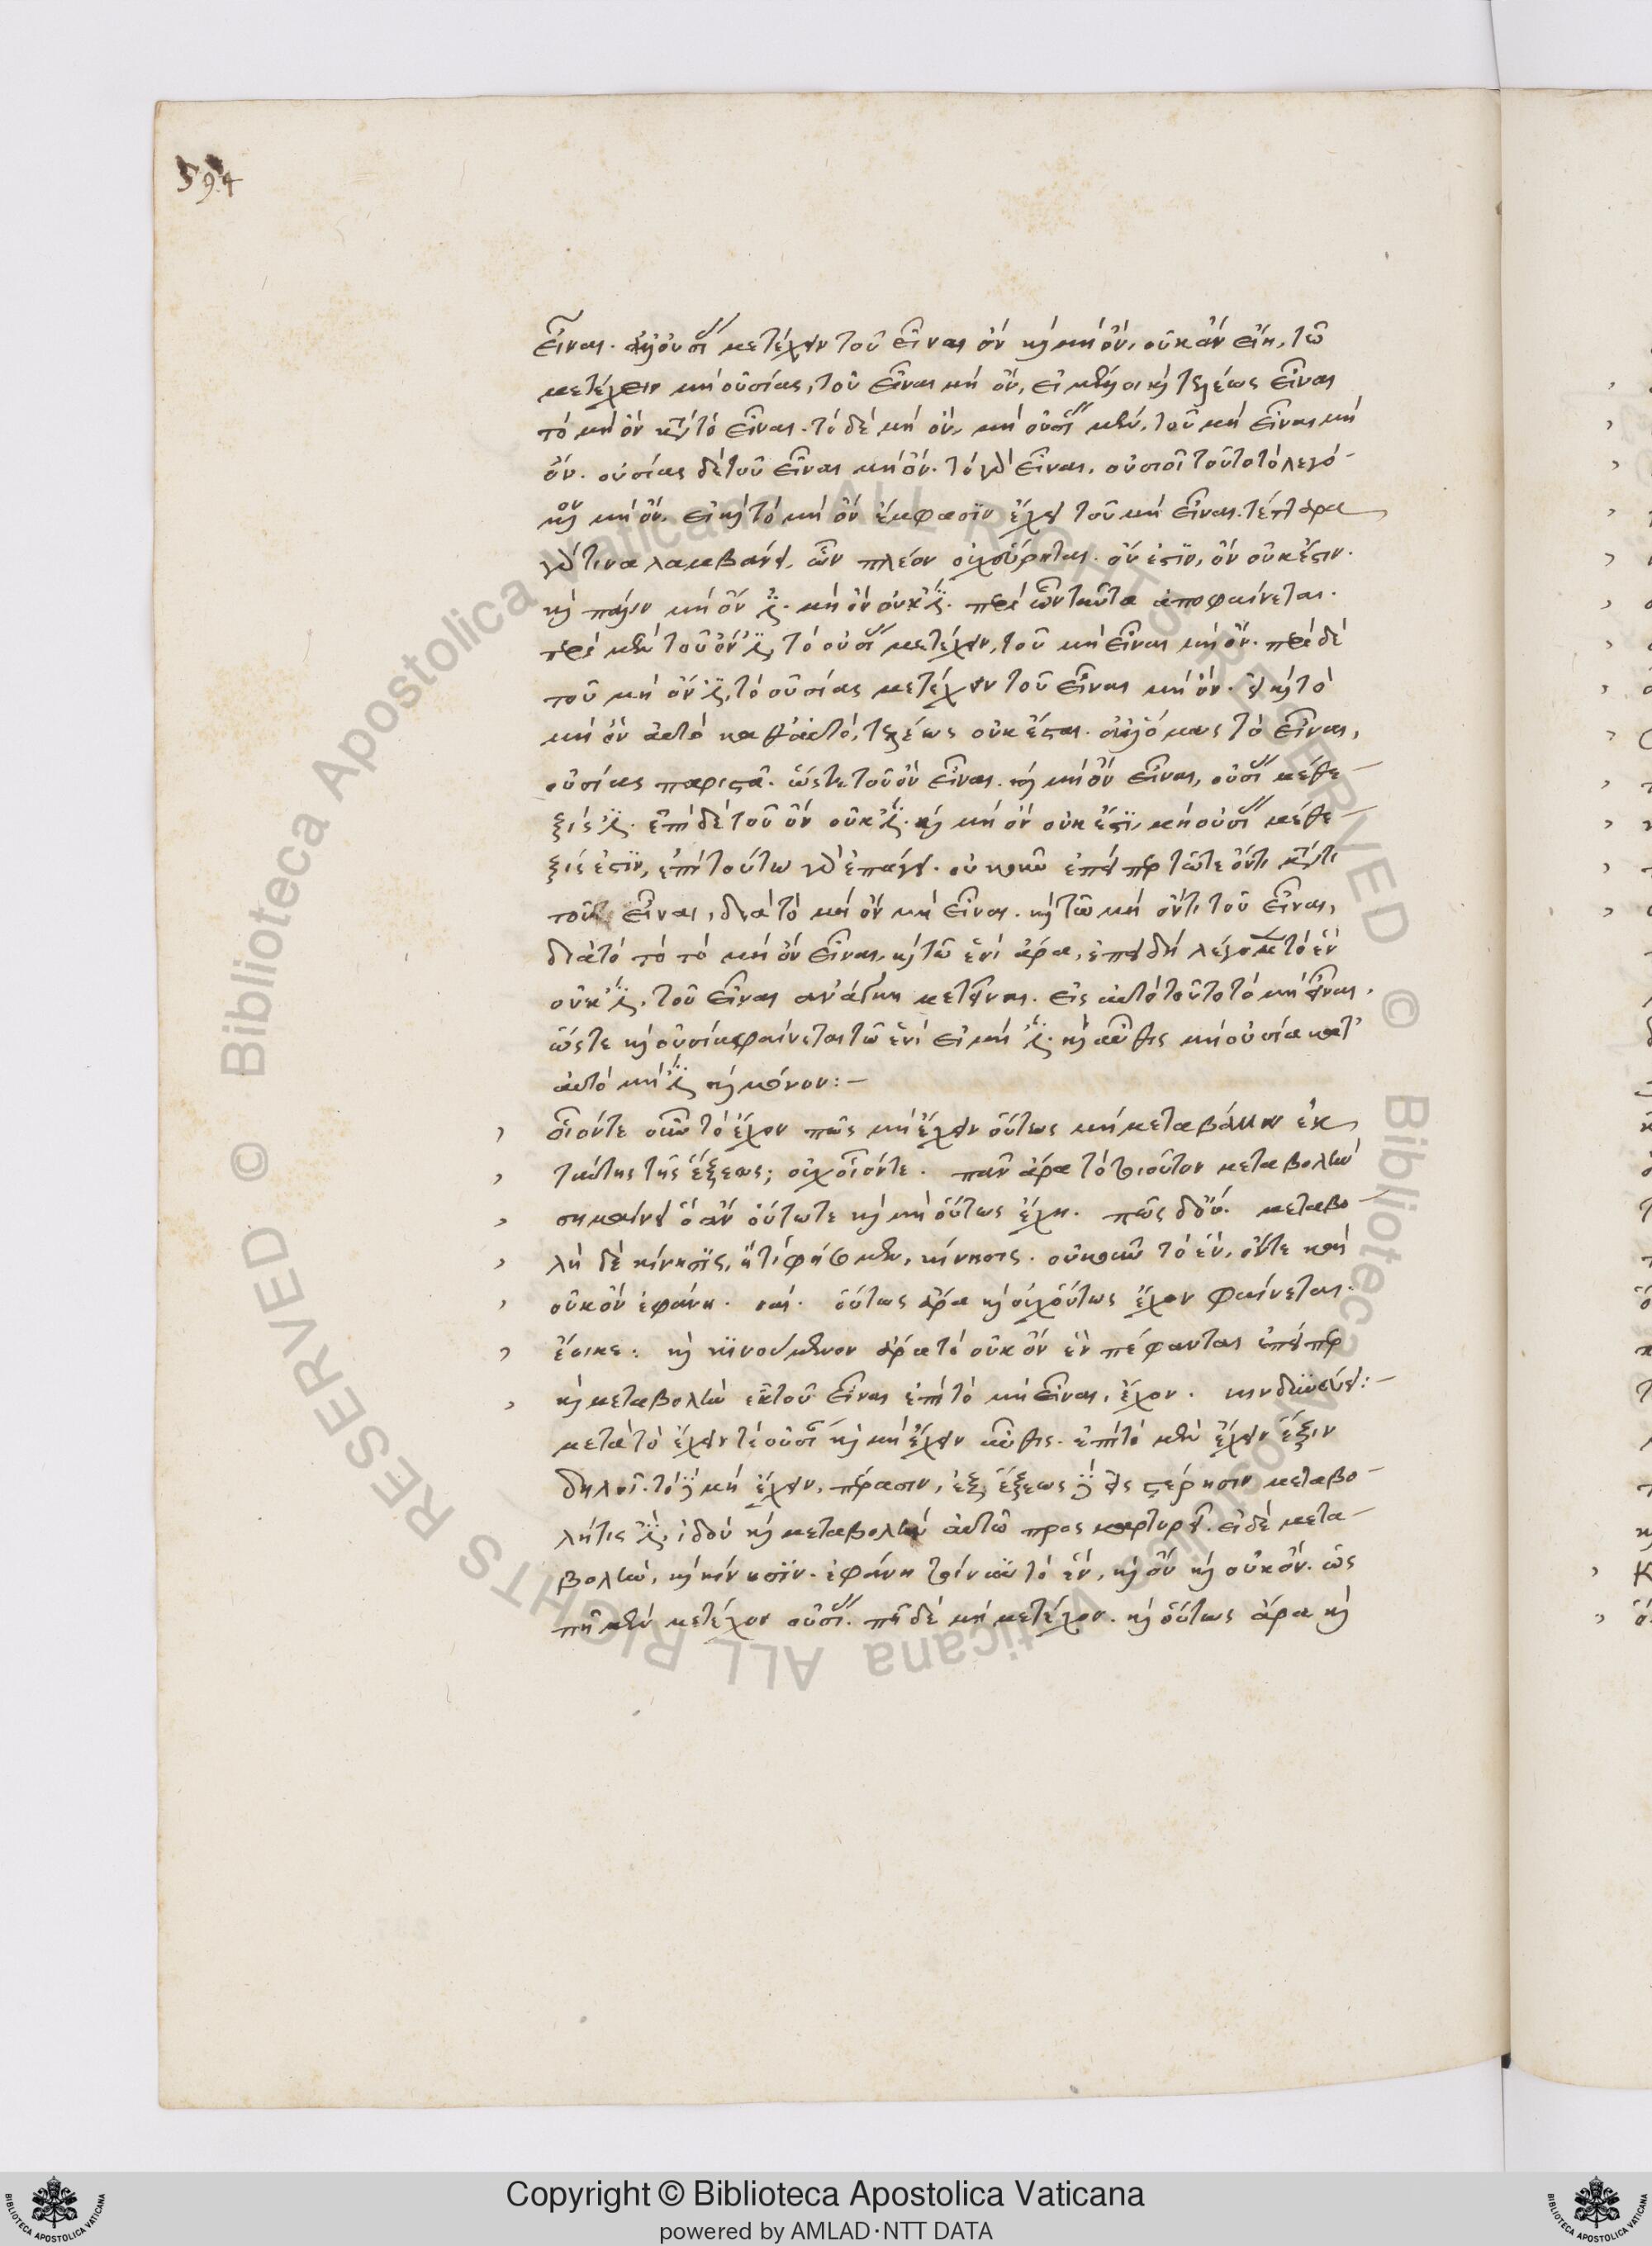 594
εἶναι. ἀλλ' οὐσί μετέχειν τοῦ εἶναι ὂν καὶ μὴ ὂν, οὐκ ἂν εἴη, τῶ
μετέχειν μὴ οὐσίας, τοῦ εἶναι μὴ ὂν, εἰ μέλλοι καὶ τελέως εἶναι
τὸ μὴ ὂν τὸ εἶναι. τὸ δὲ μὴ ὂν, μὴ οὐσί μὲν, τοῦ μὴ εἶναι μὴ
ὄν. οὐσίας δὲ τοῦ εἶναι μὴ ὄν. τὸ γὰρ εἶναι, οὐσιοῖ τοῦτο τὸ λεγό-
μον μὴ ὂν. εἰ καὶ τὸ μὴ ὂν ἔμφασϊν ἔχει τοῦ μὴ εἶναι. τέτταρα
γάρ τινα λαμβάνει, ὧν πλέον οὐχ εὕρηται. ὄν ἐστιν, ὂν οὐκ ἔστιν.
καὶ πάλιν μὴ ὄν ἐστι. μὴ ὂν οὐκ ἔστι. περὶ ὧν ταῦτα ἀποφαίνεται.
περὶ μὲν τοῦ ὄν ἐστι, τὸ οὐσί μετέχειν, τοῦ μὴ εἶναι μὴ ὄν. περὶ δὲ
τοῦ μὴ ὄν ἐστι, τὸ οὐσίας μετέχειν τοῦ εἶναι μὴ ὄν. εἰ καὶ τὸ
μὴ ὂν αὐτὸ καθ' αὑτὸ, τελέως οὐκ ἔσται. ἀλλ' ὅμως τὸ εἶναι,
οὐσίας παριστᾶ. ὥστε τοῦ ὂν εἶναι. καὶ μὴ ὂν εἶναι, οὐσί μέθε-
ξίς ἐστι. ἐπὶ δὲ τοῦ ὂν οὐκ ἔστι. καὶ μὴ ὂν οὐκ ἔστϊ, μὴ οὐσί μέθε-
ξίς ἐστϊν, ἐπὶ τούτω γὰρ ἐπάγει. οὐκοῦν ἐπείπερ τῶτε ὄντι
τοῦ εἶναι, διὰ τὸ μὴ ὂν μὴ εἶναι. καὶ τῶ μὴ ὄντι τοῦ εἶναι,
διὰ τὸ τὸ τὸ μὴ ὂν εἶναι, καὶ τῶ ἑνὶ ἄρα, ἐπειδὴ λέγομεν τὸ ἓν
οὐκ ἔστι, τοῦ εἶναι ἀνάγκη μετεῖναι. εἰς αὐτὸ τοῦτο τὸ μὴ εἶναι.
ὥστε καὶ οὐσία φαίνεται τῶ ἑνὶ εἰ μὴ ἔστι. καὶ αὖθις μὴ οὐσία κατ'
αὐτὸ μὴ ἔστι καὶ μόνον:—
οἷόντε οὖν τὸ ἔχον πῶς μὴ ἔχειν οὕτως μὴ μεταβάλλον ἐκ
ταύτης τῆς ἕξεως; οὐχ οἷόντε. πᾶν ἄρα τὸ τοιοῦτον μεταβολὴν
σημαίνει ὃ ἂν οὕτωτε καὶ μὴ οὕτως ἔχη. πῶς δ' οὔ. μεταβο-
λὴ δὲ κίνησϊς, ἢ τί φήσομεν, κίνησις. οὐκοῦν τὸ ἓν, ὄντε καὶ
οὐκ ὂν ἐφάνη. ναί. οὕτως ἄρα καὶ οὐχ οὕτως ἔχον φαίνεται.
ἔοικε: καὶ κϊνούμενον ἄρα τὸ οὐκ ὂν ἓν πέφανται ἐπείπερ
καὶ μεταβολὴν ἐκ τοῦ εἶναι ἐπὶ τὸ μὴ εἶναι, ἔχον. κινδυνεύει:—
μετὰ τὸ ἔχειν τὲ οὐσί καὶ μὴ ἔχειν αὖθις. ἐπὶ τὸ μὲν ἔχειν ἕξιν
δηλοῖ. τὸ δὲ μὴ ἔχειν, στέρησιν, ἐξ ἕξεως δὲ εἰς στέρησιν μεταβο-
λή τις ἐστὶ, ἰδοὺ καὶ μεταβολὴν αὐτῶ προσμαρτυρεῖ. εἰ δὲ μετα-
βολὴν, καὶ κίνησϊν. ἐφάνη τοίνυν τὸ ἓν, καὶ ὂν καὶ οὐκ ὄν. ὡς
πῆ μὲν μετέχον οὐσί. πῆ δὲ μὴ μετέχον. καὶ οὕτως ἄρα καὶ
Copyright © Biblioteca Apostolica Vaticana
powered by AMLAD·NTT DATA